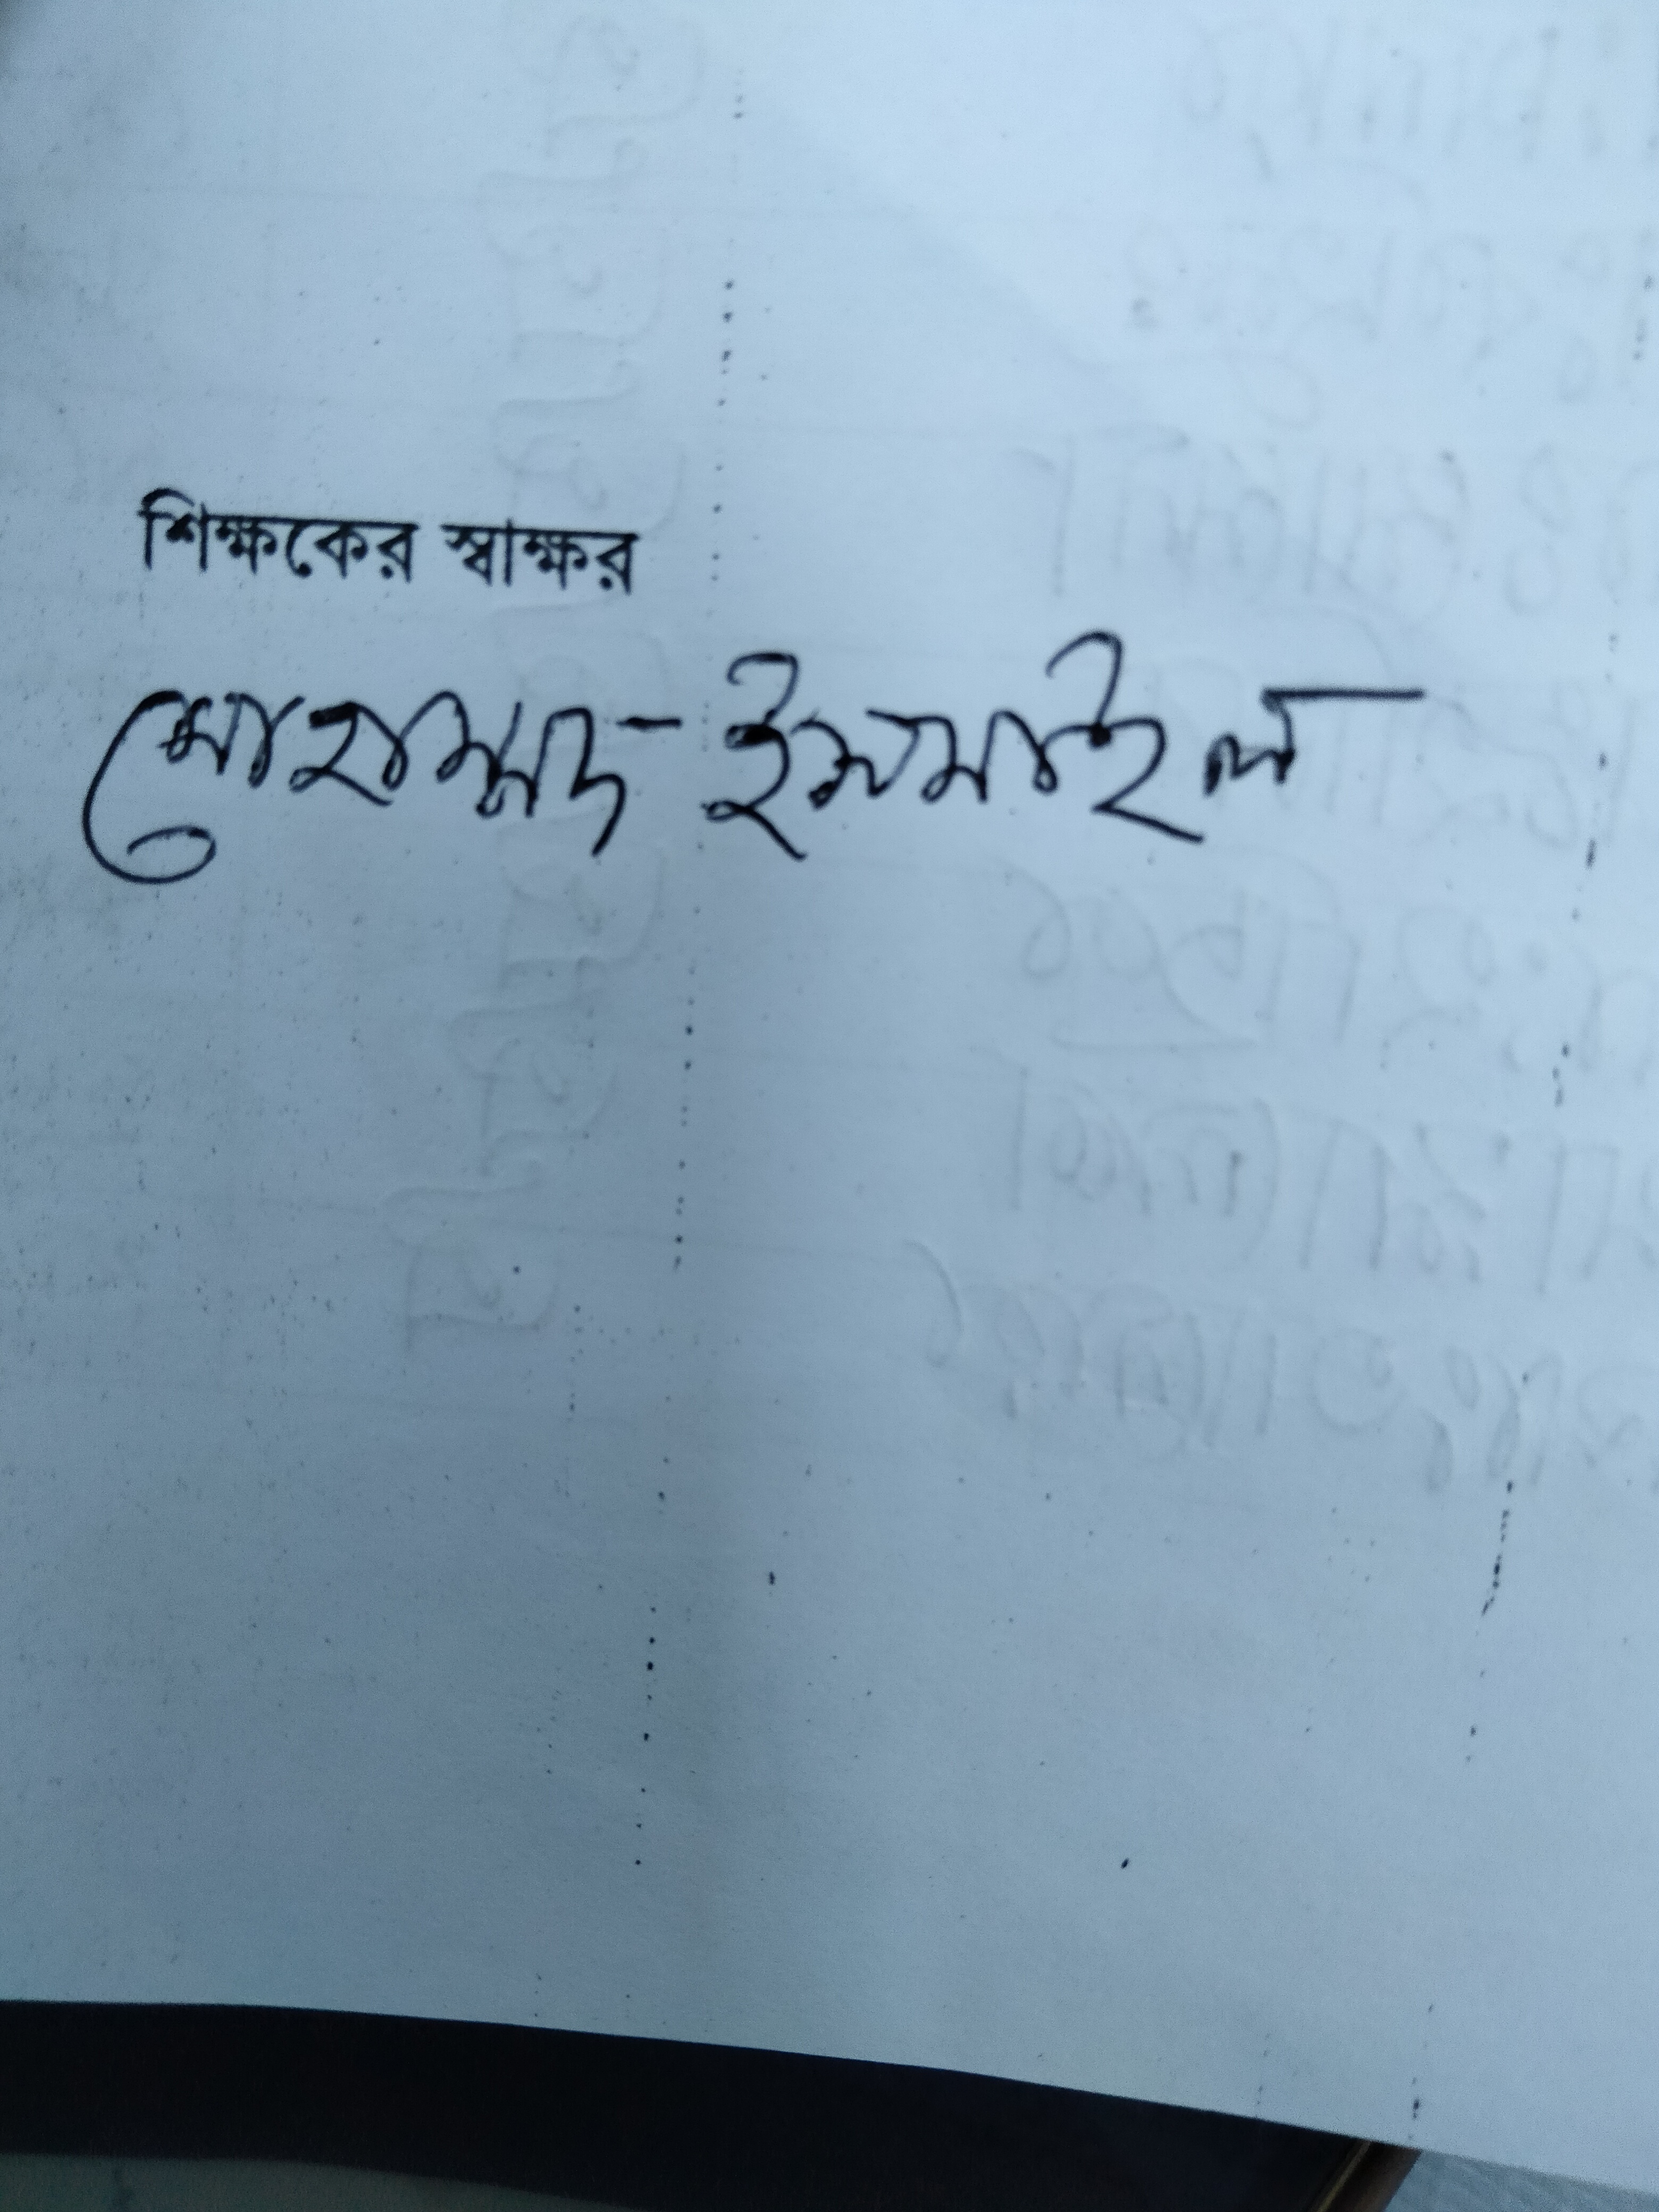 শিক্ষকের স্বাক্ষর
মোহাম্মদ ইসমাইল